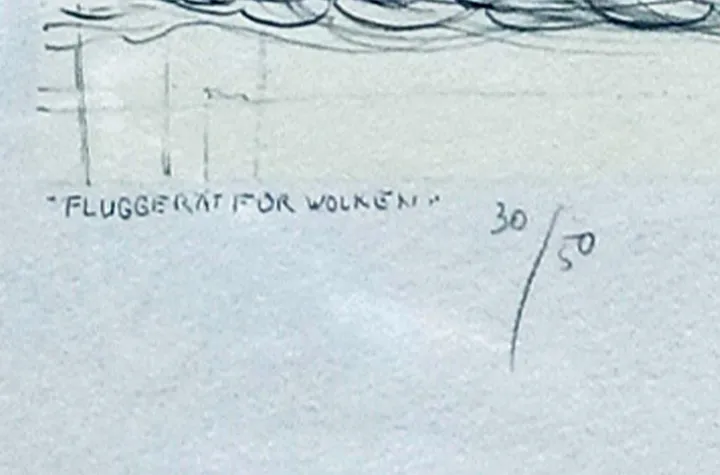 "FLUGGERÄT FÜR WOLKEN"
30/50